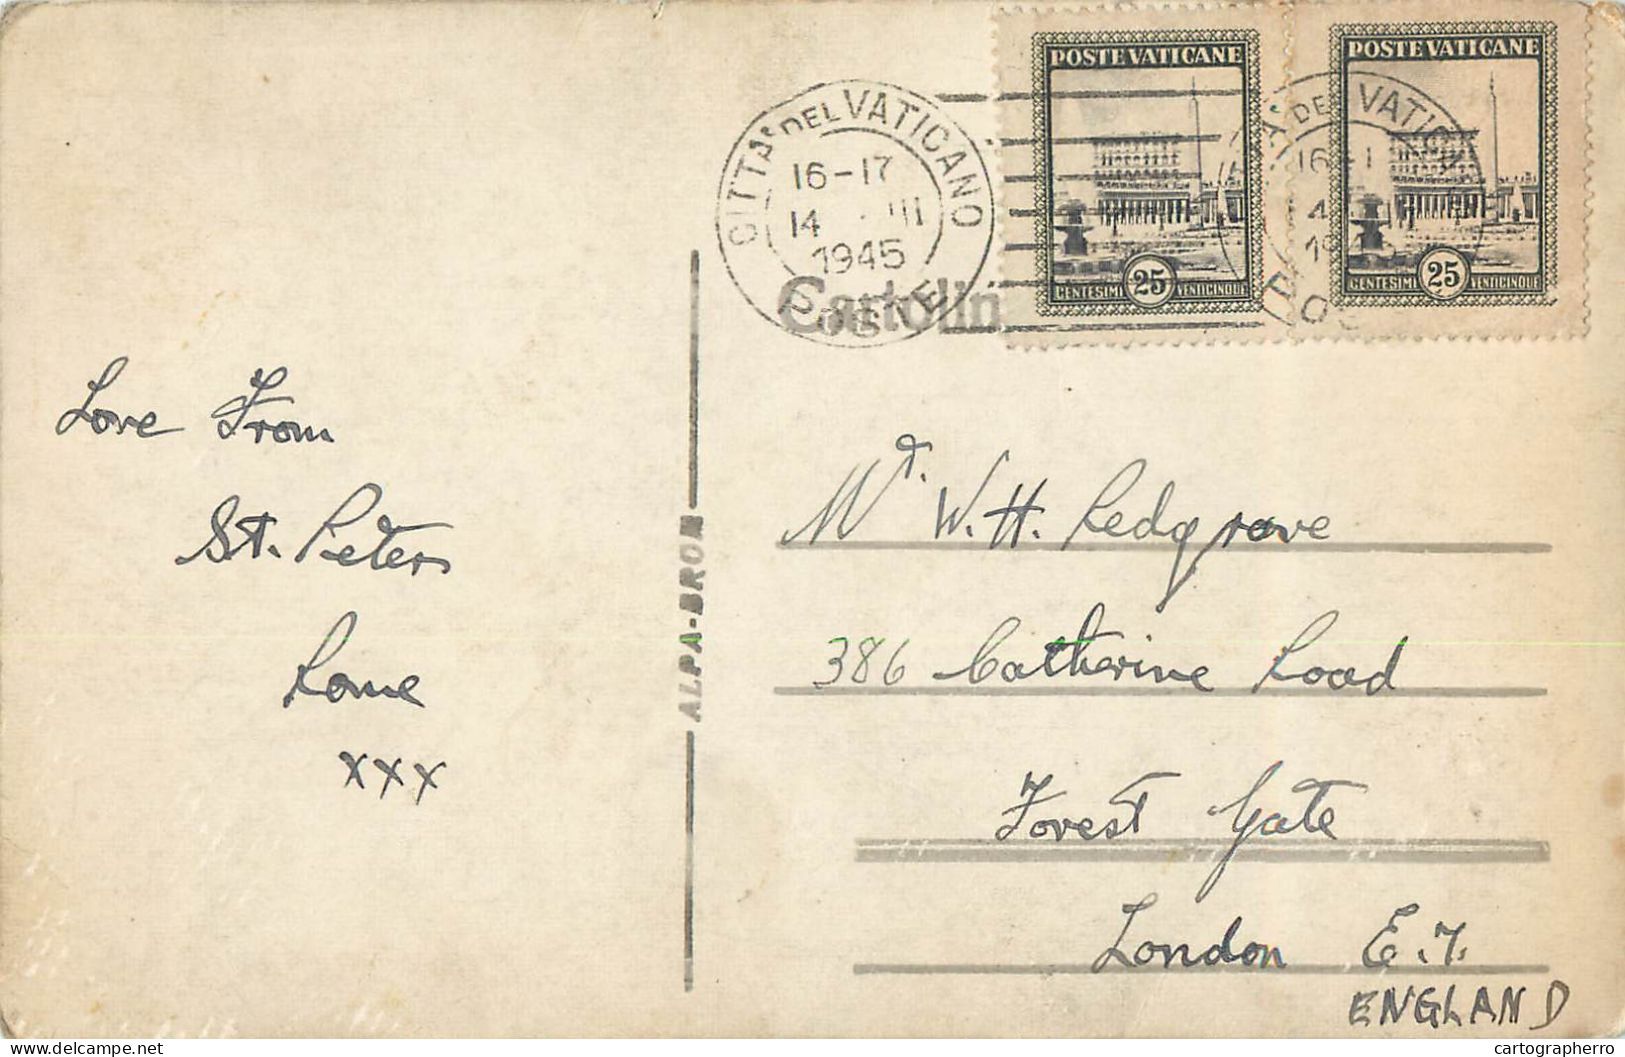 POSTE VATICANE
POSTE VATICANE
CITTA' DEL VATICANO
16-17
14 III
1945
POSTE
DEL VATICAN
Cartolin
CENTESIMI 25 VENTICINQUE
CENTESIMI 25 VENTICINQUE
Love From
St. Peters
Rome
xxx
ALPA-BROM
W. H. Redgrave
386 Catherine Road
Forest Gate
London E.7.
ENGLAND
delcampe.net
cartographerro